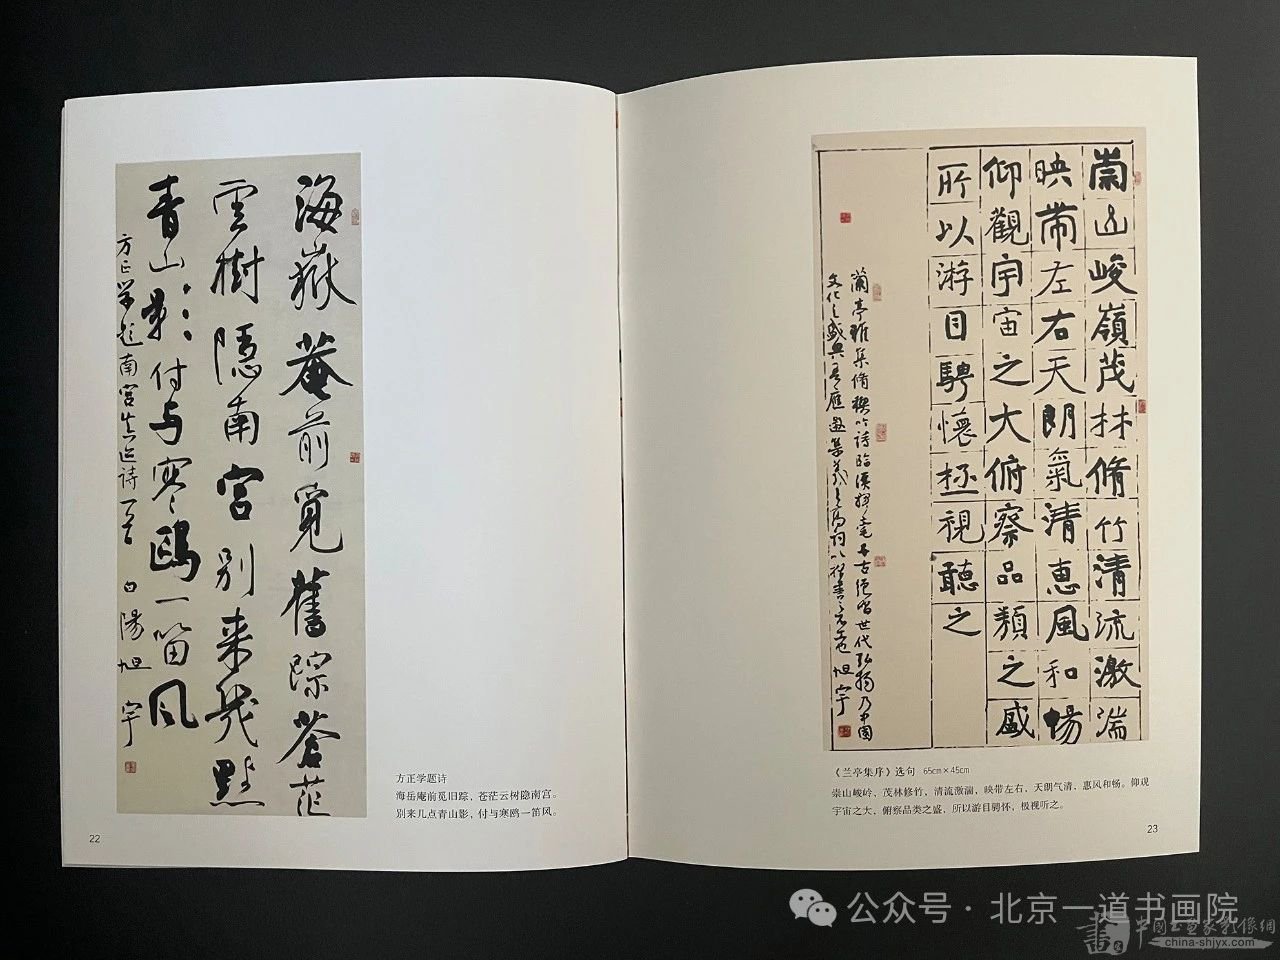 海嶽菴前覓舊踪蒼茫
雲樹隱南宮别来幾點
青山影付与寒鷗一笛风
方正学题南宫真迹诗一首 白陽旭宇
方正学题诗
海岳庵前觅旧踪，苍茫云树隐南宫。
别来几点青山影，付与寒鸥一笛风。
22
崇山峻嶺茂林脩竹清流激湍
映帶左右天朗氣清惠風和暢
仰觀宇宙之大俯察品類之盛
所以游目騁懷極視聽之
蘭亭雅集脩禊吟詩臨溪揮毫千古绝唱世代弘揚乃中國
文化之盛典
旭宇
《兰亭集序》选句 65cm×45cm
崇山峻岭，茂林修竹，清流激湍，映带左右，天朗气清，惠风和畅。仰观
宇宙之大，俯察品类之盛，所以游目骋怀，极视听之。
23
公众号 · 北京一道书画院
中國书画家影像網
china-shjyx.com